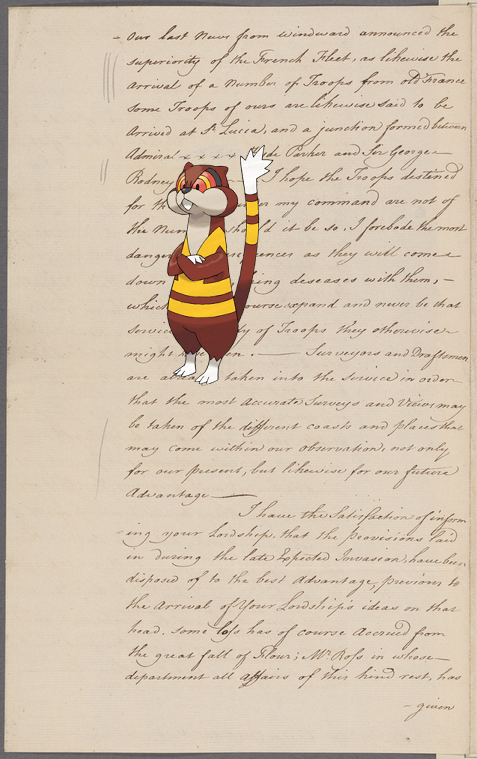 Our last News from windward announced the
Superiority of the French Fleet, as likewise the
arrival of a Number of Troops from old France
Some Troops of ours are likewise said to be
arrived at St. Lucia, and a junction formed between
Admiral x x x x de Parker and Sir George
Rodney I hope the Troops destined
for th my command are not of
the Num should it be so, I forebode the most
dang as they will come
down ing deseases with them,
whic course expand and never be that
Servic ty of Troops they otherwise
might Surveyors and Draftsmen
are taken into the Service in order
that the most accurate Surveys and Views may
be taken of the different coasts and places that
may come within our observation, not only
for our present, but likewise for our future
Advantage
I have the Satisfaction of inform
ing your Lordship, that the provisions laid
in during the late Expected Invasion, have been
disposed of to the best advantage, previous to
the arrival of Your Lordship's ideas on that
head, some loss has of course accrued from
the great fall of Flour; Mr. Ross in whose
department all affairs of this kind rest, has
given